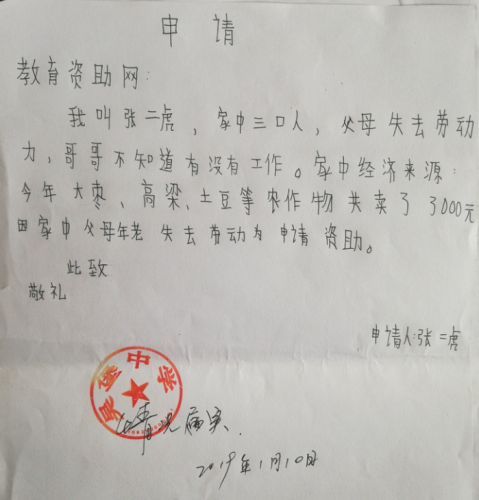 申请
教育资助网:
我叫张二虎，家中三口人，父母失去劳动
力，哥哥不知道有没有工作。家中经济来源:
今年大枣、高梁、土豆等农作物共卖了3000元
因家中父母年老失去劳动力申请资助。
此致
敬礼
申请人:张二虎
吴堡中学
情况属实.
2019年1月10日